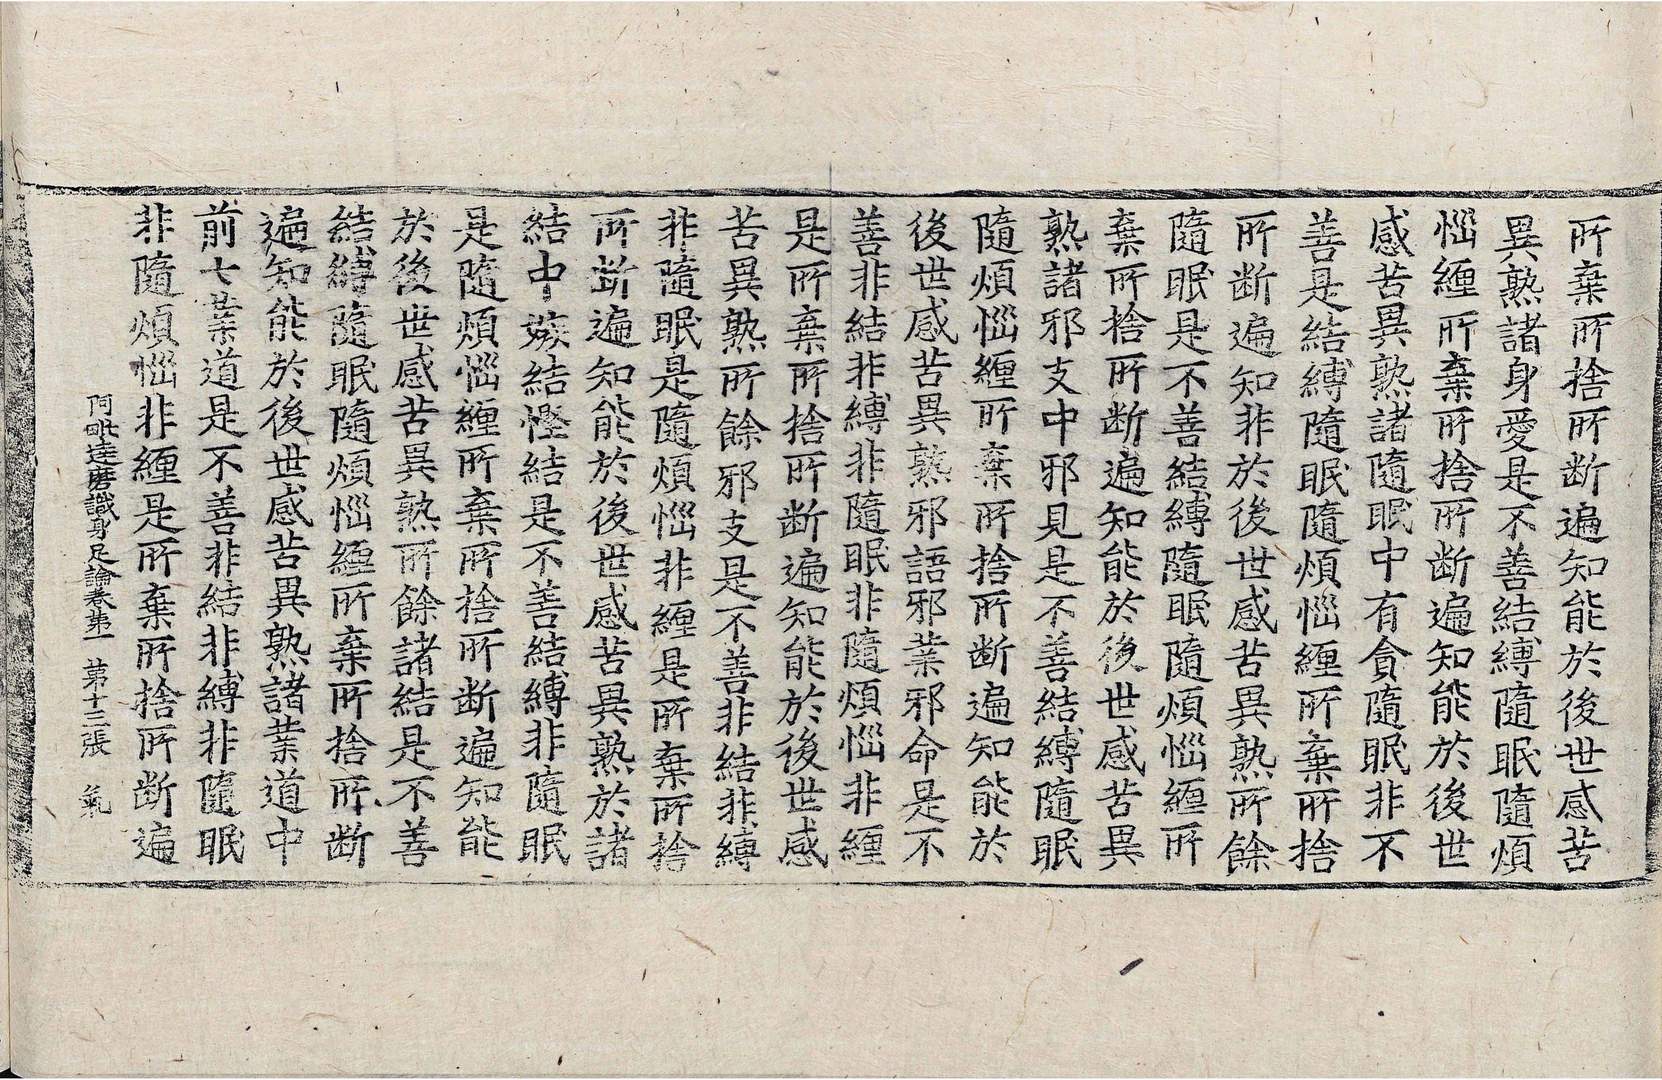 所棄所捨所断遍知能於後世感苦
異熟諸身愛是不善結縛隨眠隨煩
惱纏所棄所捨所断遍知能於後世
感苦異熟諸隨眠中有貪隨眠非不
善是結縛隨眠隨煩惱纏所棄所捨
所断遍知非於後世感苦異熟所餘
隨眠是不善結縛隨眠隨煩惱纏所
棄所捨所断遍知能於後世感苦異
熟諸邪支中邪見是不善結縛隨眠
隨煩惱纏所棄所捨所断遍知能於
後世感苦異熟邪語邪業邪命是不
善非結非縛非隨眠非隨煩惱非纏
是所棄所捨所断遍知能於後世感
苦異熟所餘邪支是不善非結非縛
非隨眠是隨煩惱非纏是所棄所捨
所断遍知能於後世感苦異熟於諸
結中嫉結慳結是不善結縛非隨眠
是隨煩惱纏所棄所捨所断遍知能
於後世感苦異熟所餘諸結是不善
結縛隨眠隨煩惱纏所棄所捨所断
遍知能於後世感苦異熟諸業道中
前七業道是不善非結非縛非隨眠
非隨煩惱非纏是所棄所捨所断遍
阿毗達磨識身足論卷第一 第十三張 氣